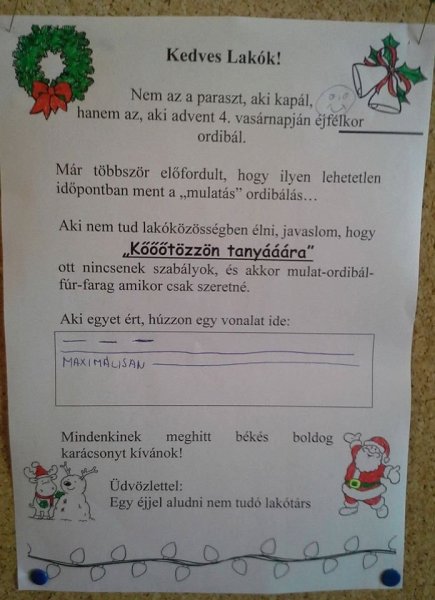 Kedves Lakók!
Nem az a paraszt, aki kapál,
hanem az, aki advent 4. vasárnapján éjfélkor
ordibál.
Már többször előfordult, hogy ilyen lehetetlen
időpontban ment a „mulatás” ordibálás…
Aki nem tud lakóközösségben élni, javaslom, hogy
„Kőőőtözzön tanyááára”
ott nincsenek szabályok, és akkor mulat-ordibál-
fúr-farag amikor csak szeretné.
Aki egyet ért, húzzon egy vonalat ide:
MAXIMÁLISAN
Mindenkinek meghitt békés boldog
karácsonyt kívánok!
Üdvözlettel:
Egy éjjel aludni nem tudó lakótárs